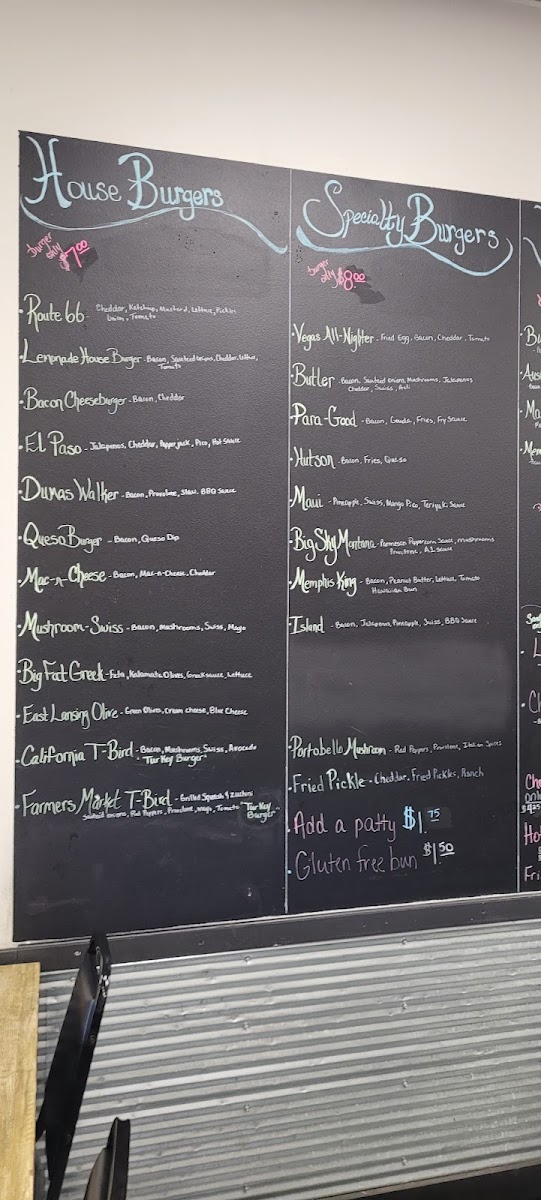 House Burgers
burger
only $7.00
Route 66 - Cheddar, Ketchup, Mustard, Lettuce, Pickles
Onion, Tomato
Lemonade House Burger - Bacon, Sauteed onions, Cheddar, Lettuce,
Tomato
Bacon Cheese Burger - Bacon, Cheddar
El Paso - Jalapenos, Cheddar, Pepper jack, Pico, Hot Sauce
Dumas Walker - Bacon, Provolone, Slaw, BBQ Sauce
Queso Burger - Bacon, Queso Dip
Mac-n-Cheese - Bacon, Mac-n-Cheese, Cheddar
Mushroom-Swiss - Bacon, Mushrooms, Swiss, Mayo
Big Fat Greek - Feta, Kalamata Olives, Greek sauce, Lettuce
East Lansing Olive - Green Olives, Cream Cheese, Blue Cheese
California T-Bird - Bacon, Mushrooms, Swiss, Avocado
"Turkey Burger"
Farmers Market T-Bird - Grilled Squash & Zucchini
sauteed onions, Red Peppers, Provolone, mayo, Tomato "Turkey
Burger"
Specialty Burgers
burger
only $8.00
Vegas All-Nighter - Fried Egg, Bacon, Cheddar, Tomato
Butler - Bacon, Sauteed Onions, Mushrooms, Jalapenos
Cheddar, Swiss,
Para-Good - Bacon, Gouda, Fries, Fry Sauce
Hutson - Bacon, Fries, Queso
Maui - Pineapple, Swiss, Mango Pico, Teriyaki Sauce
Big Sky Montana - Parmesan Peppercorn Sauce, mushrooms
Provolone, A1 sauce
Memphis King - Bacon, Peanut Butter, Lettuce, Tomato
Hawaiian Bun
Island - Bacon, Jalapenos, Pineapple, Swiss, BBQ Sauce
Portobello Mushroom - Red Peppers, Provolone, Italian Spices
Fried Pickle - Cheddar, Fried Pickles, Ranch
Add a patty $1.75
Gluten free bun $1.50